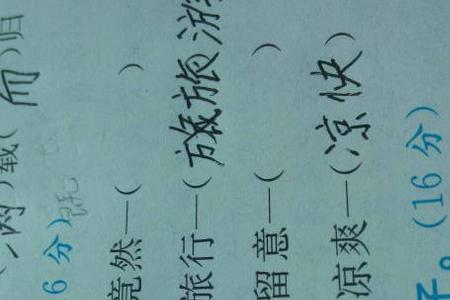 (满)载(而)归
6 分)
竟然—( )
旅行—(旅游
留意—( )
凉爽—(凉快)
子。(16 分)